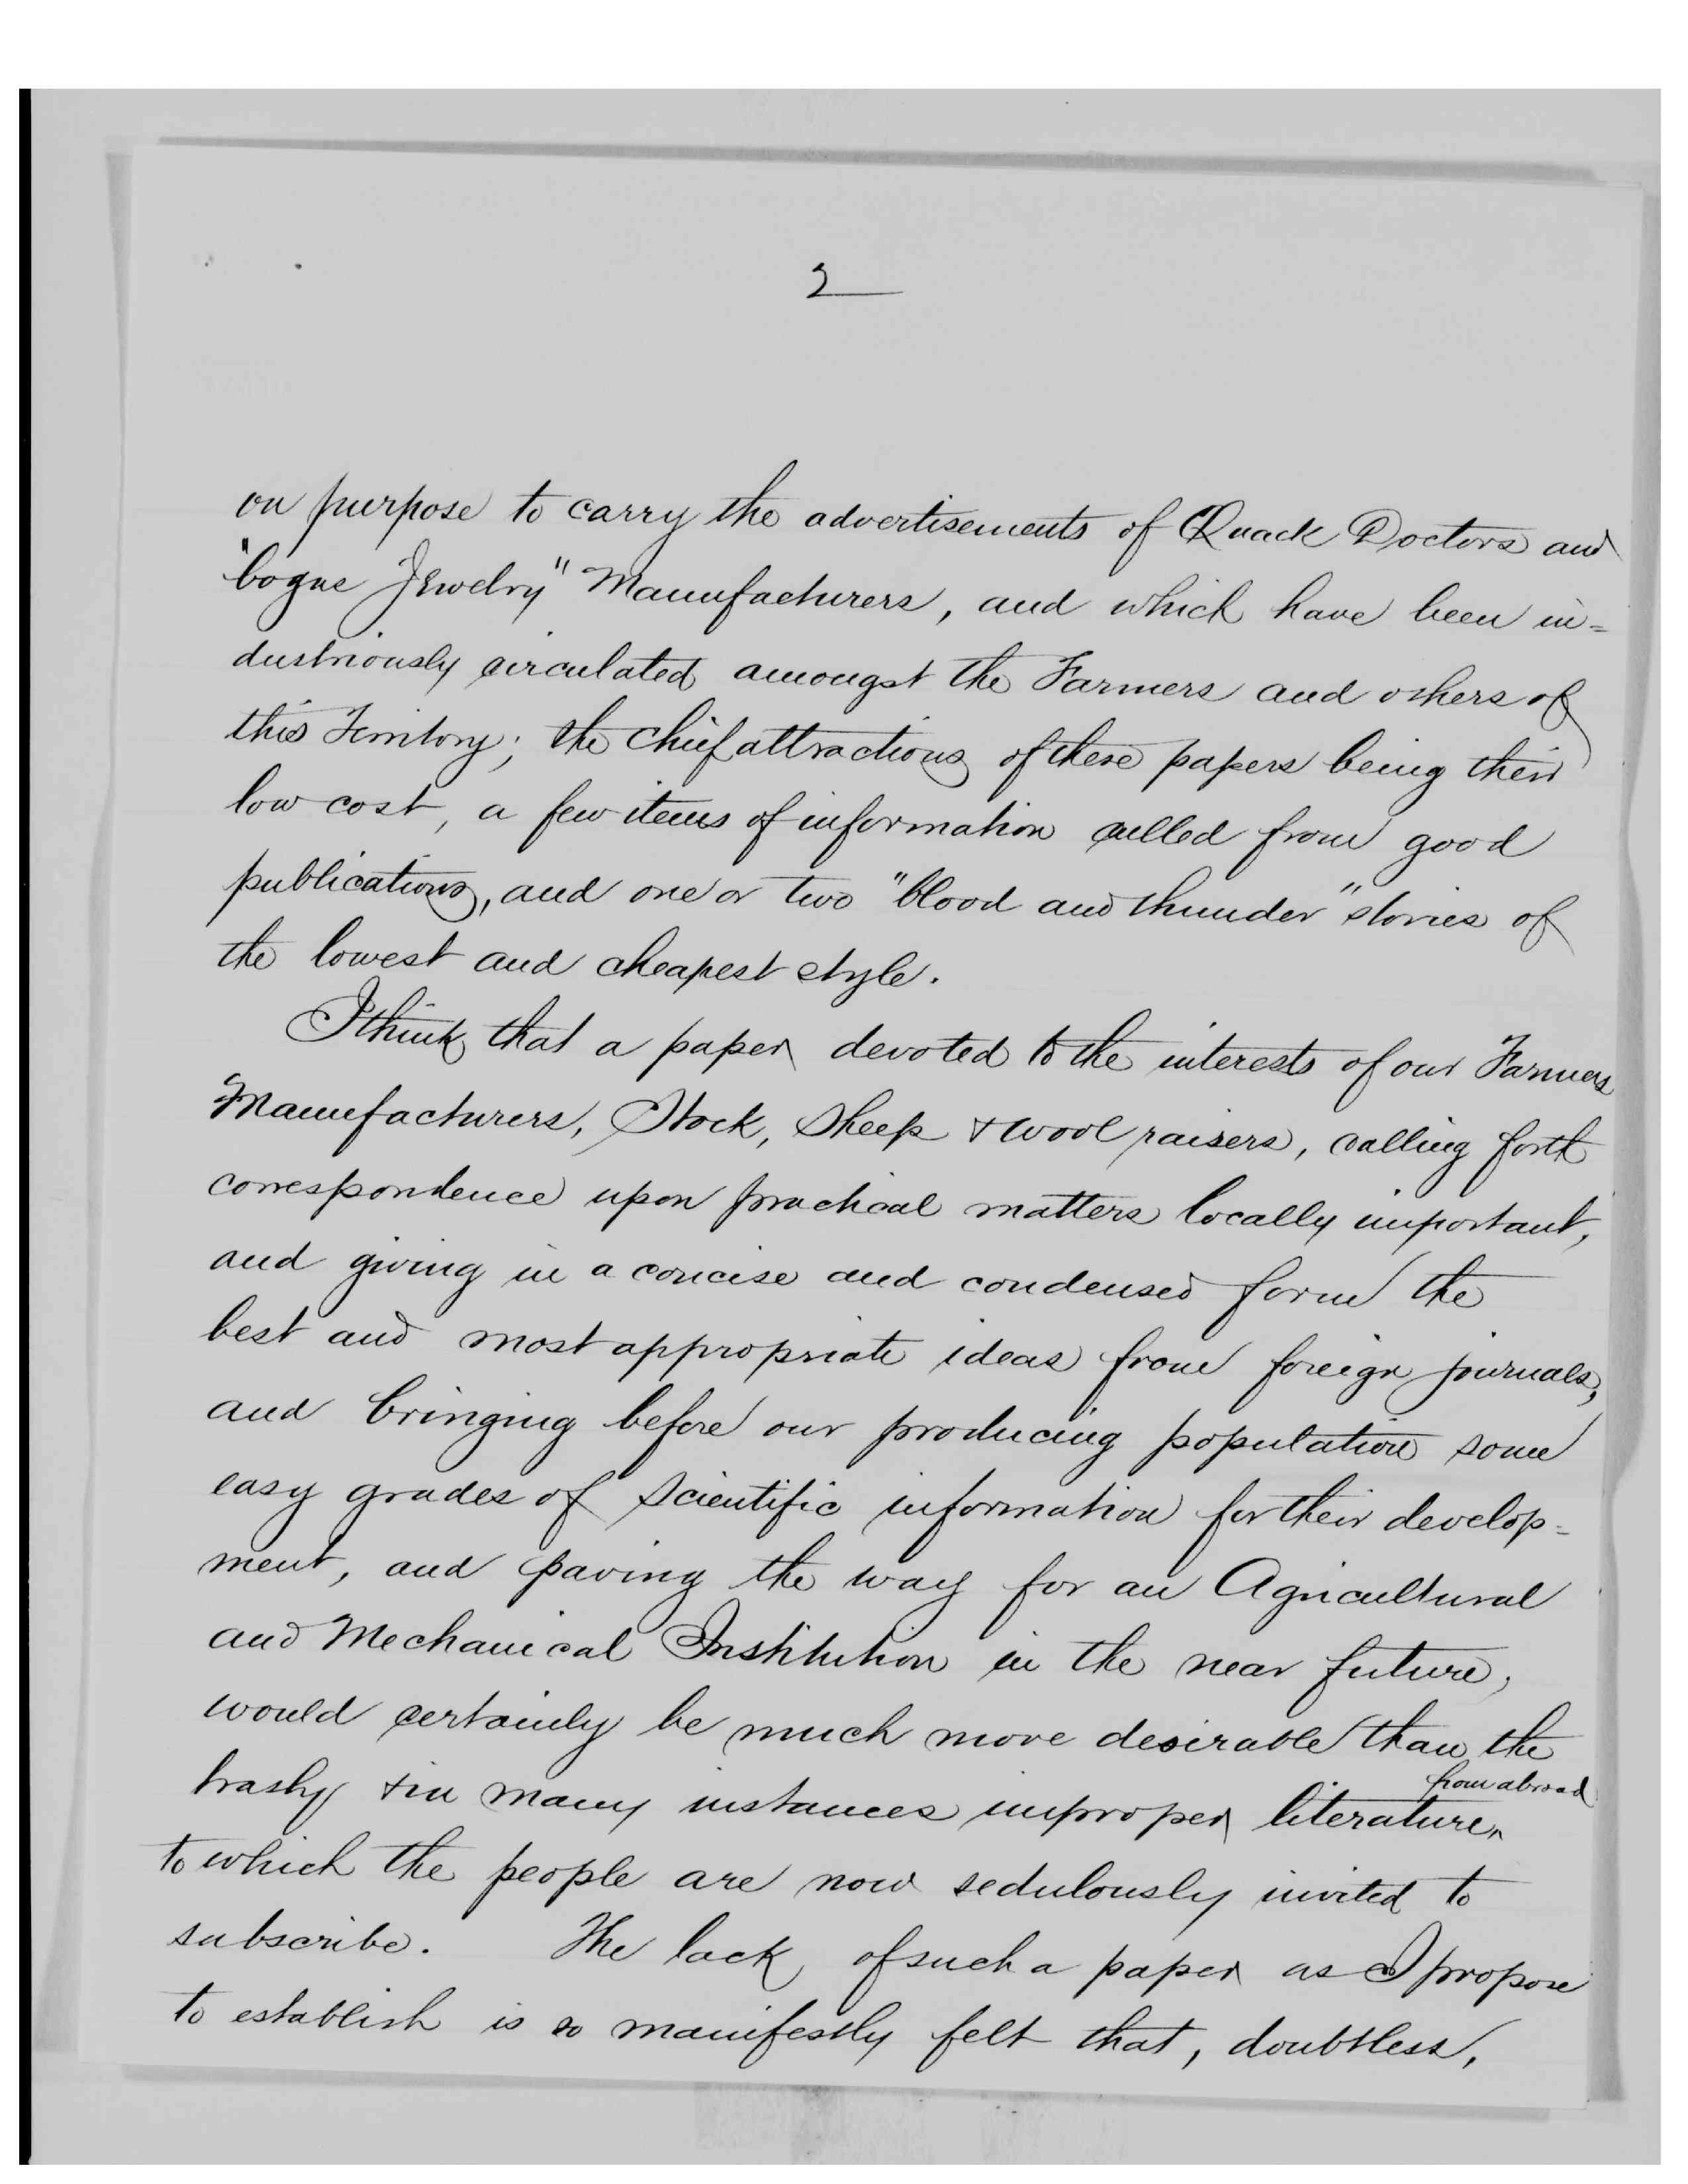 2
on purpose to carry the advertisements of Quack Doctors and
"bogue Jewelry" Manufacturers, and which have been in=
dustriously circulated amongst the Farmers and others of
this Territory; the chief attractions of these papers being their
low cost, a few items of information culled from good
publications, and one or two "blood and thunder" stories of
the lowest and cheapest style.
I think that a paper devoted to the interests of our Farmers
Manufacturers, Stock, Sheep & wool raisers, calling forth
correspondence upon practical matters locally important,
and giving in a concise and condensed form the
best and most appropriate ideas from foreign journals,
and bringing before our producing population some
easy grades of scientific information for their develop=
ment, and paving the way for an Agricultural
and Mechanical Institution in the near future,
would certainly be much more desirable than the
from abroad
trashy & in many instances improper literature
to which the people are now sedulously invited to
subscribe. The lack of such a paper as I propose
to establish is so manifestly felt that, doubtless,